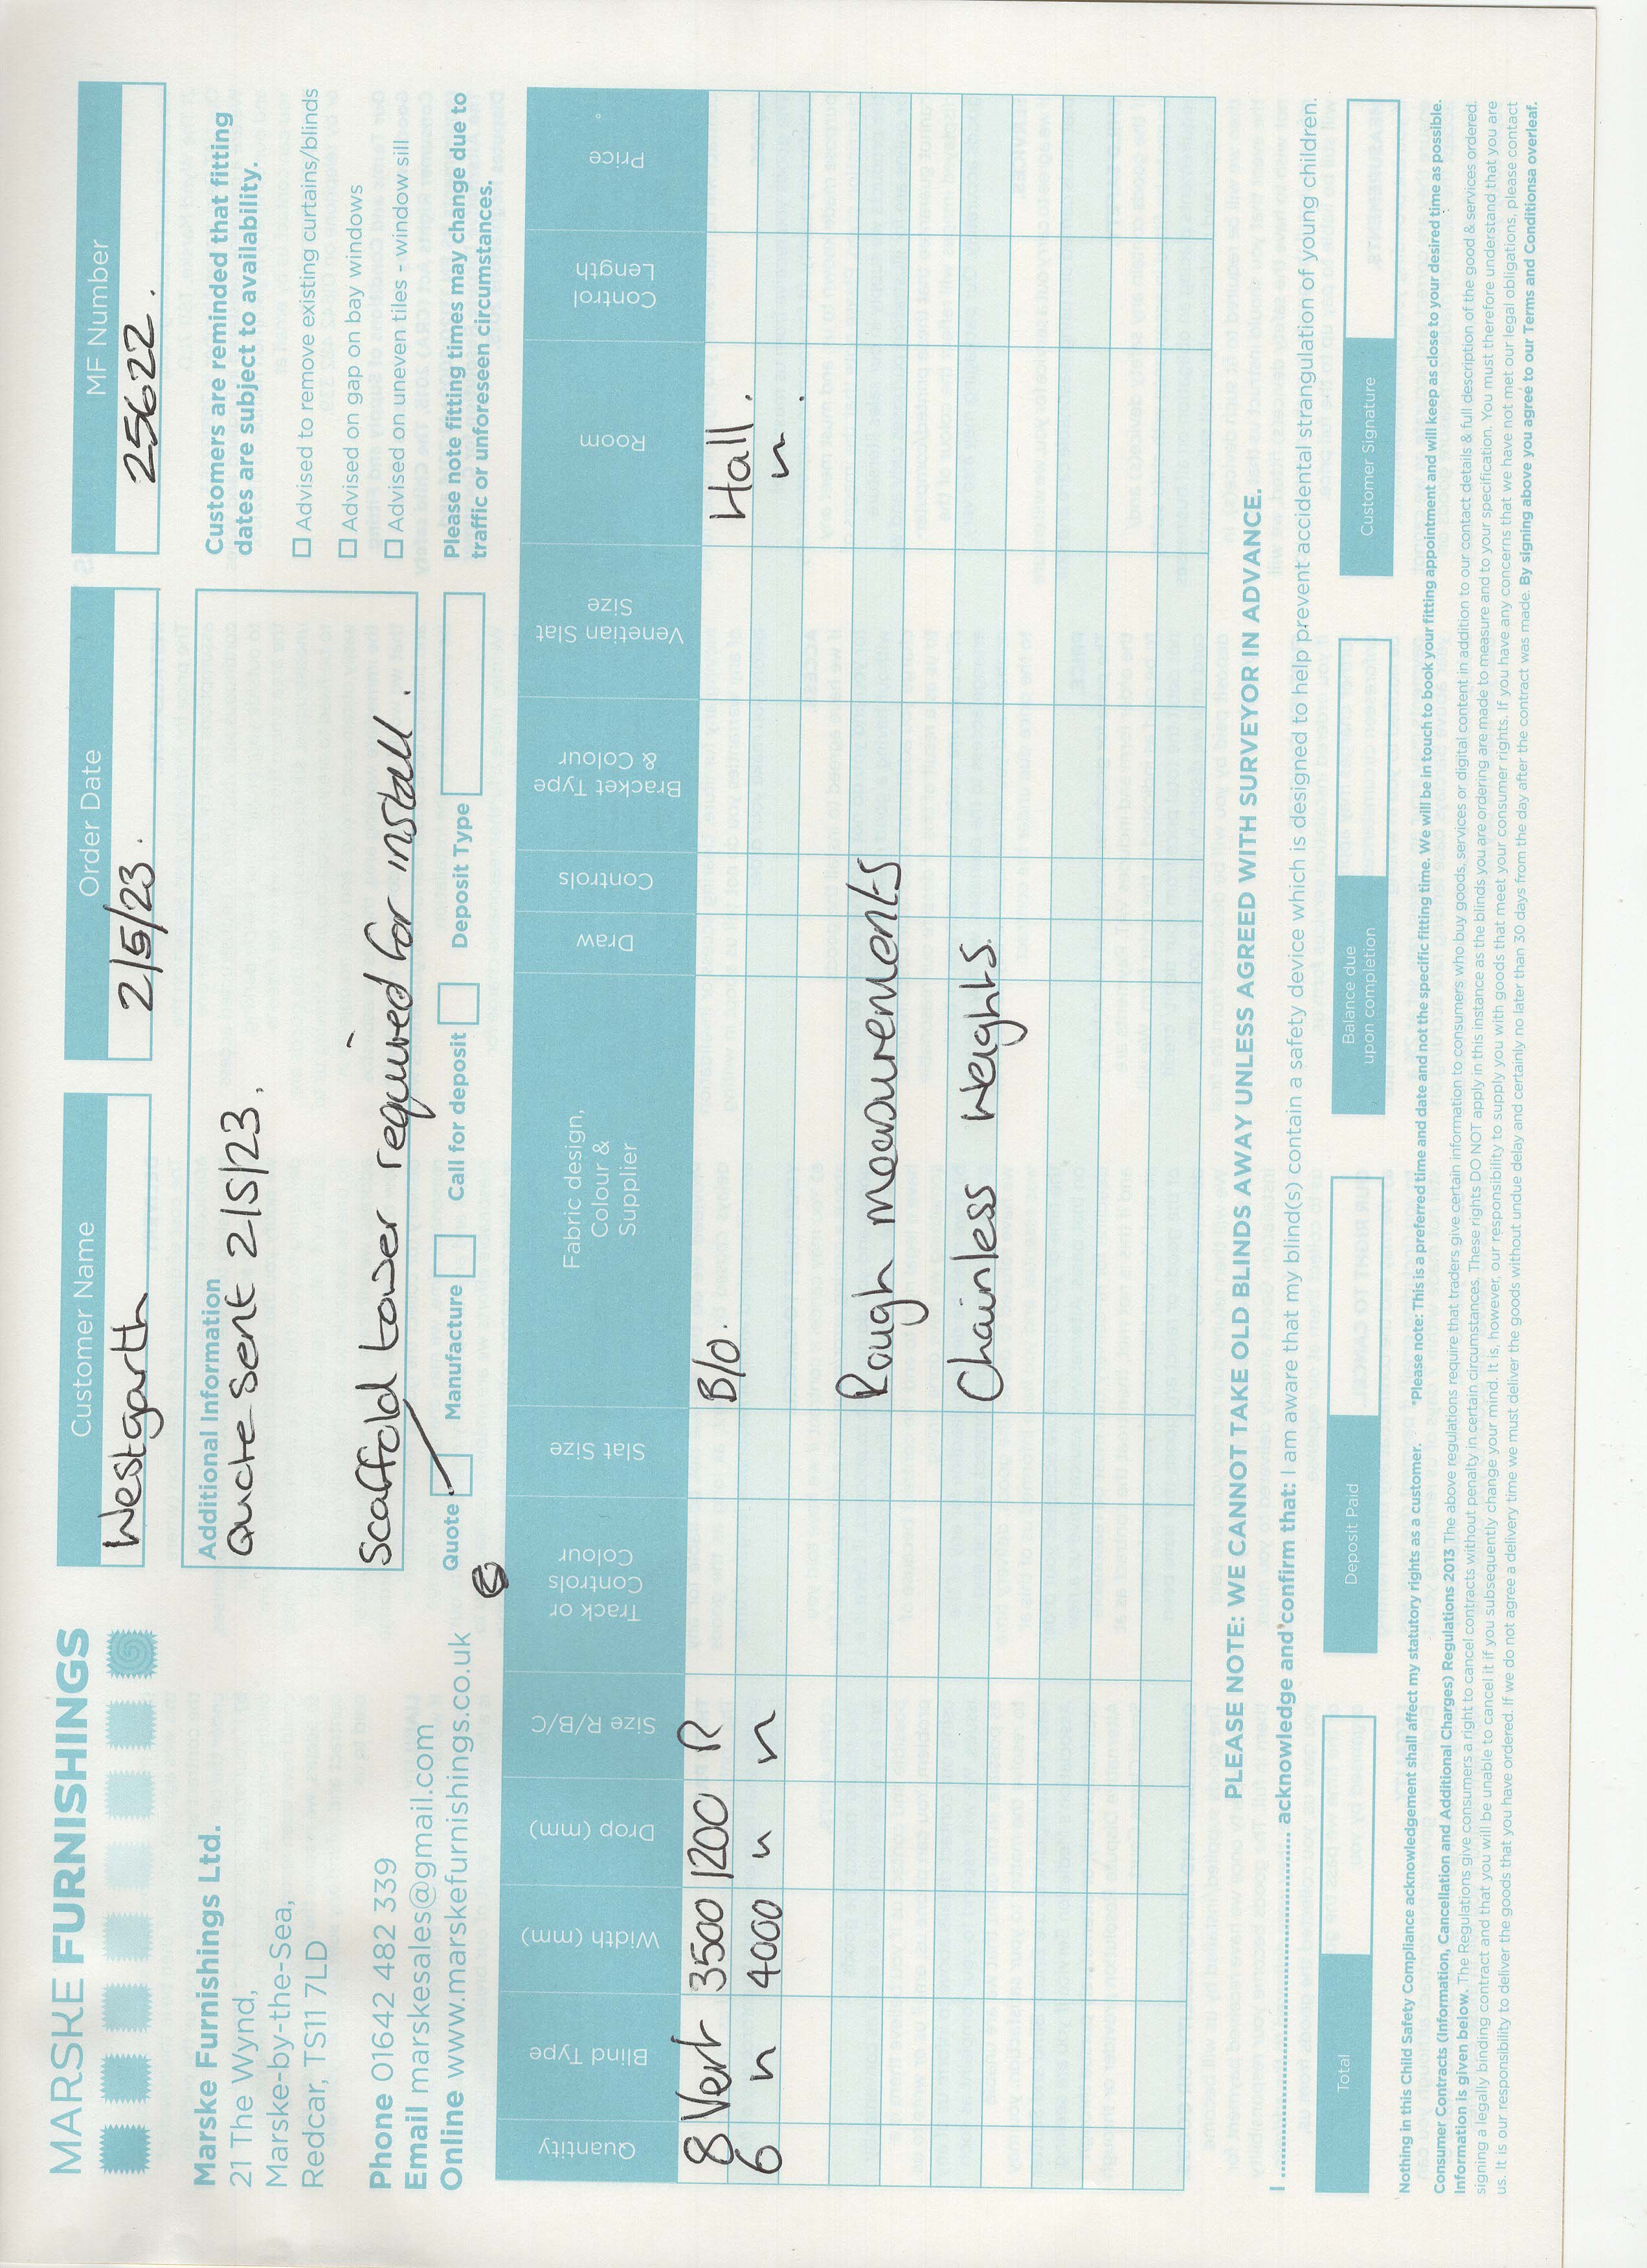 MARSKE FURNISHINGS
Marske Furnishings Ltd.
21 The Wynd,
Marske-by-the-Sea,
Redcar, TS11 7LD
Phone 01642 482 339
Email marskesales@gmail.com
Online www.marskefurnishings.co.uk
Customer Name
Westgarth
Order Date
2/5/23.
MF Number
25622.
Additional Information
Quote sent 2/5/23.
Scaffold tower required for install.
Quote
Manufacture
Call for deposit
Deposit Type
Customers are reminded that fitting
dates are subject to availability.
Advised to remove existing curtains/blinds
Advised on gap on bay windows
Advised on uneven tiles - window sill
Please note fitting times may change due to
traffic or unforeseen circumstances.
Quantity
Blind Type
Width (mm)
Drop (mm)
Size R/B/C
Track or
Controls
Colour
Slat Size
Fabric design,
Colour &
Supplier
Draw
Controls
Bracket Type
& Colour
Venetian Slat
Size
Room
Control
Length
Price
8 Vert 3500 1200 R B/O. Hall.
6 " 4000 " " "
Rough measurements
Chainless weights.
PLEASE NOTE: WE CANNOT TAKE OLD BLINDS AWAY UNLESS AGREED WITH SURVEYOR IN ADVANCE.
I .......................................... acknowledge and confirm that: I am aware that my blind(s) contain a safety device which is designed to help prevent accidental strangulation of young children.
Total
Deposit Paid
Balance due
upon completion
Customer Signature
Nothing in this Child Safety Compliance acknowledgement shall affect my statutory rights as a customer. *Please note: This is a preferred time and date and not the specific fitting time. We will be in touch to book your fitting appointment and will keep as close to your desired time as possible.
Consumer Contracts (Information, Cancellation and Additional Charges) Regulations 2013 The above regulations require that traders give certain information to consumers who buy goods, services or digital content in addition to our contact details & full description of the good & services ordered.
Information is given below. The Regulations give consumers a right to cancel contracts without penalty in certain circumstances. These rights DO NOT apply in this instance as the blinds you are ordering are made to measure and to your specification. You must therefore understand that you are
signing a legally binding contract and that you will be unable to cancel it if you subsequently change your mind. It is, however, our responsibility to supply you with goods that meet your consumer rights. If you have any concerns that we have not met our legal obligations, please contact
us. It is our responsibility to deliver the goods that you have ordered. If we do not agree a delivery time we must deliver the goods without undue delay and certainly no later than 30 days from the day after the contract was made. By signing above you agree to our Terms and Conditionsa overleaf.